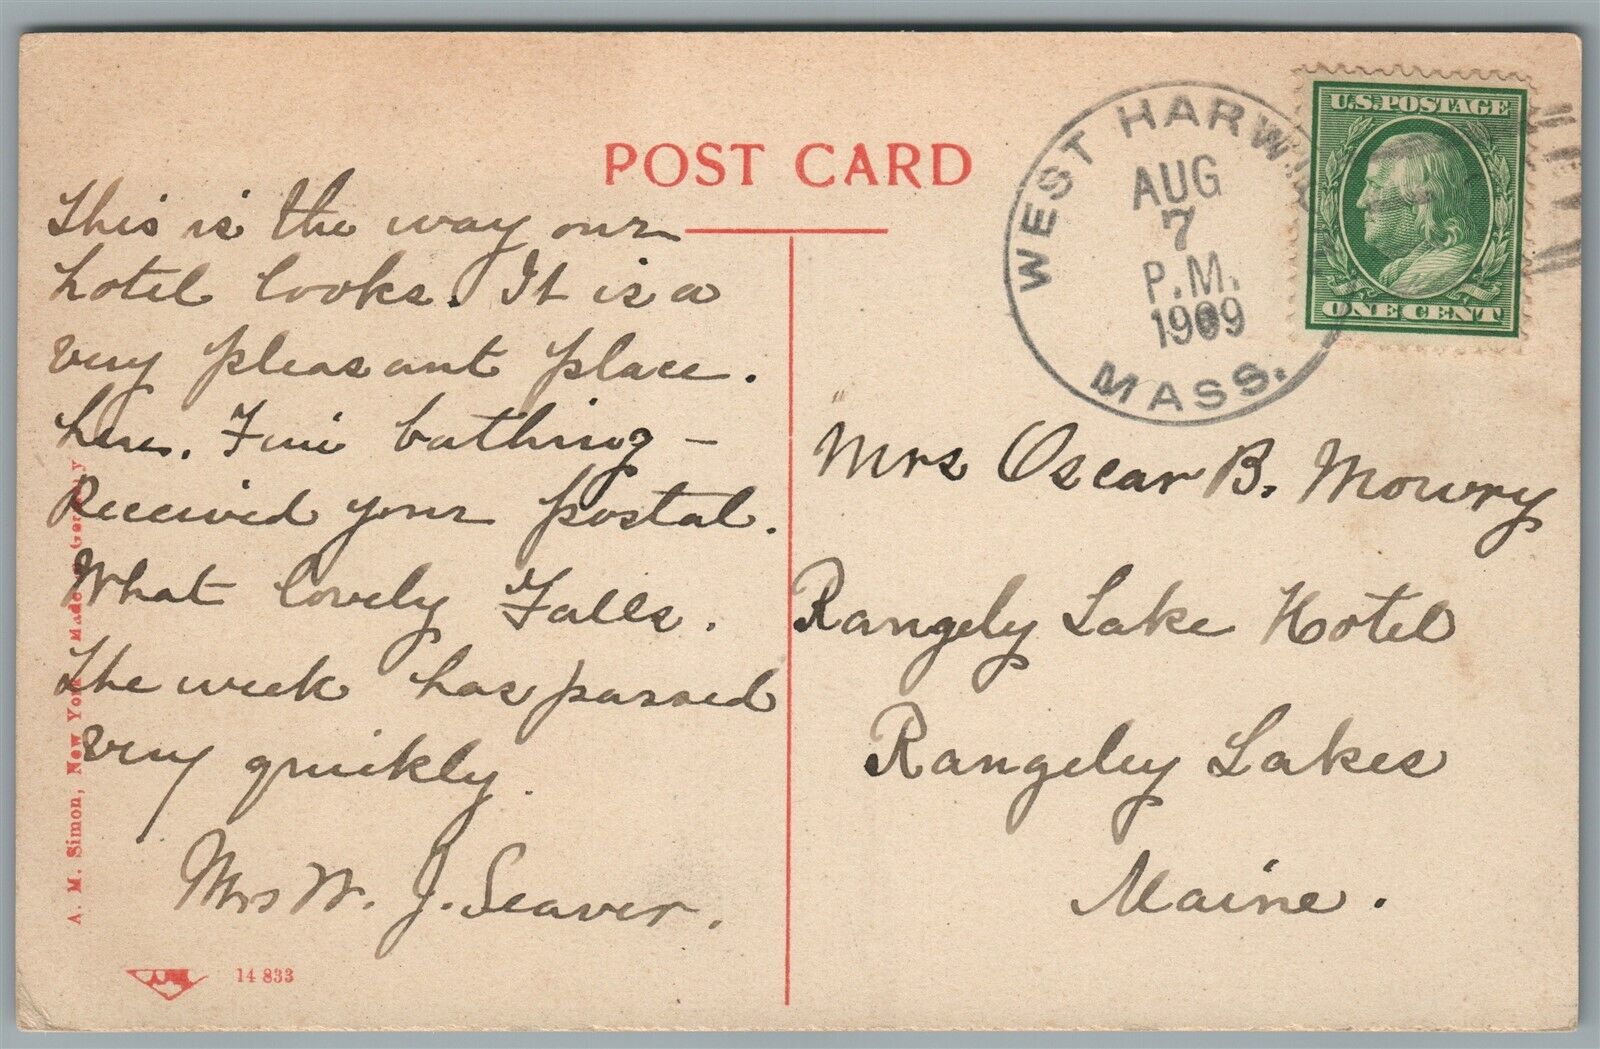 POST CARD
This is the way our
hotel looks. It is a
very pleasant place.
here. Fine bathing -
Received your postal.
What lovely Falls.
The week has passed
very quickly.
Mrs W. J. Seaver.
A. M. Simon, New York Made Germany
14 833
WEST HARWICH
AUG
7
P.M.
1909
MASS.
U.S. POSTAGE
ONE CENT
Mrs Oscar B. Mowry
Rangely Lake Hotel
Rangeley Lakes
Maine.